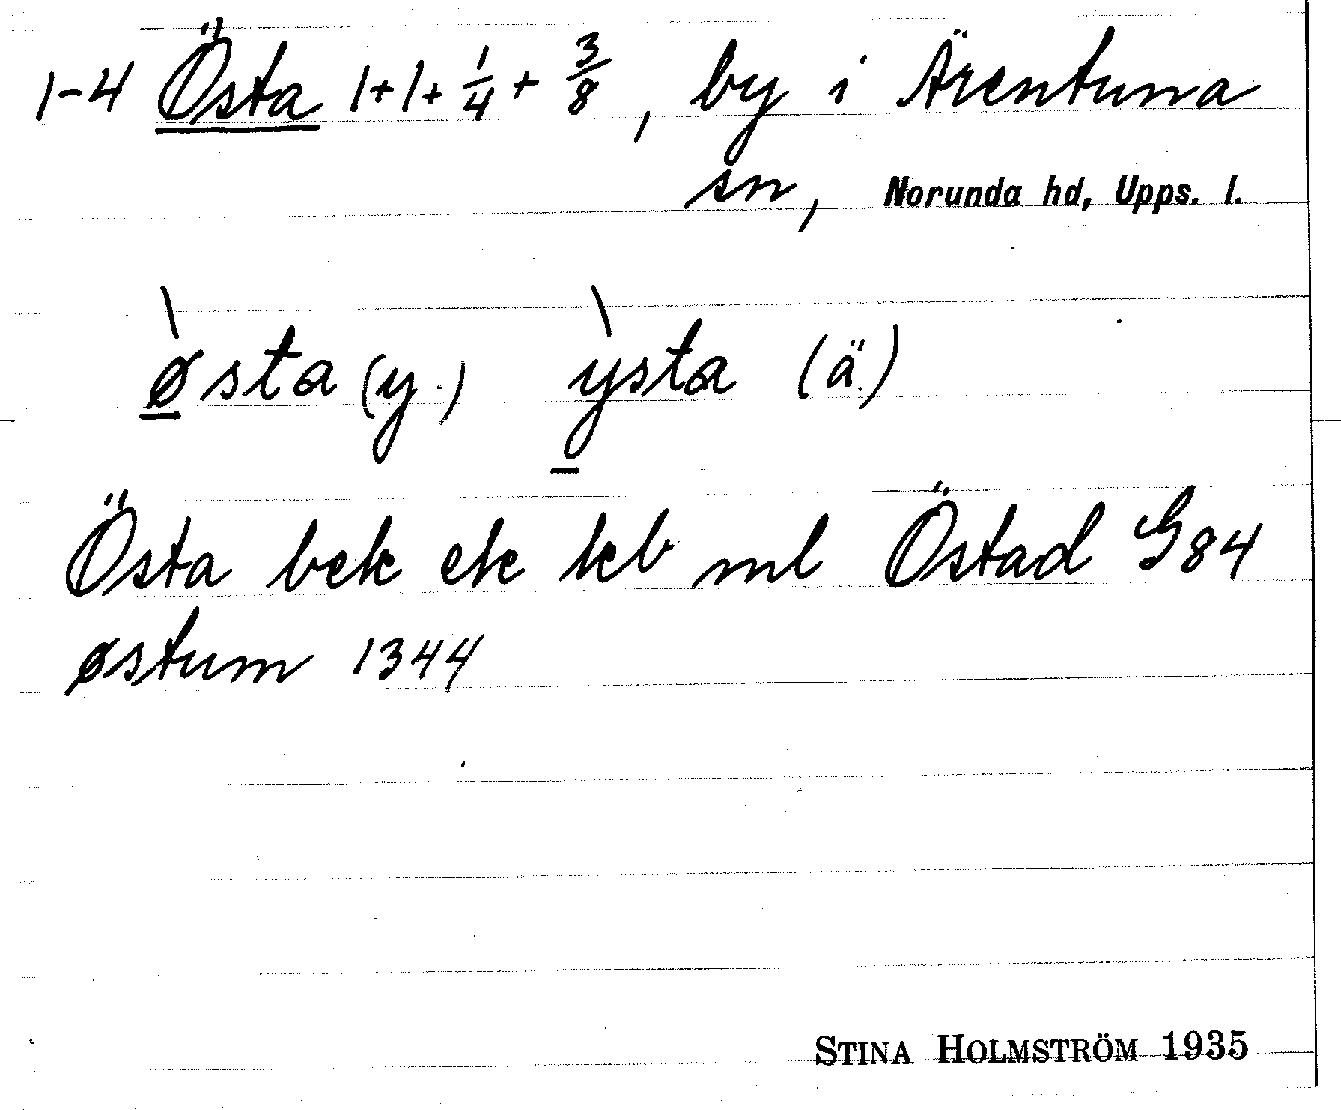 1-4 Östa 1+1+ 1/4 + 3/8, by i Ärentuna
sn, Norunda hd, Upps. l.
østa (y.) ysta (ä.)
Östa bek ek kb ml Östad G84
østum 1344
STINA HOLMSTRÖM 1935